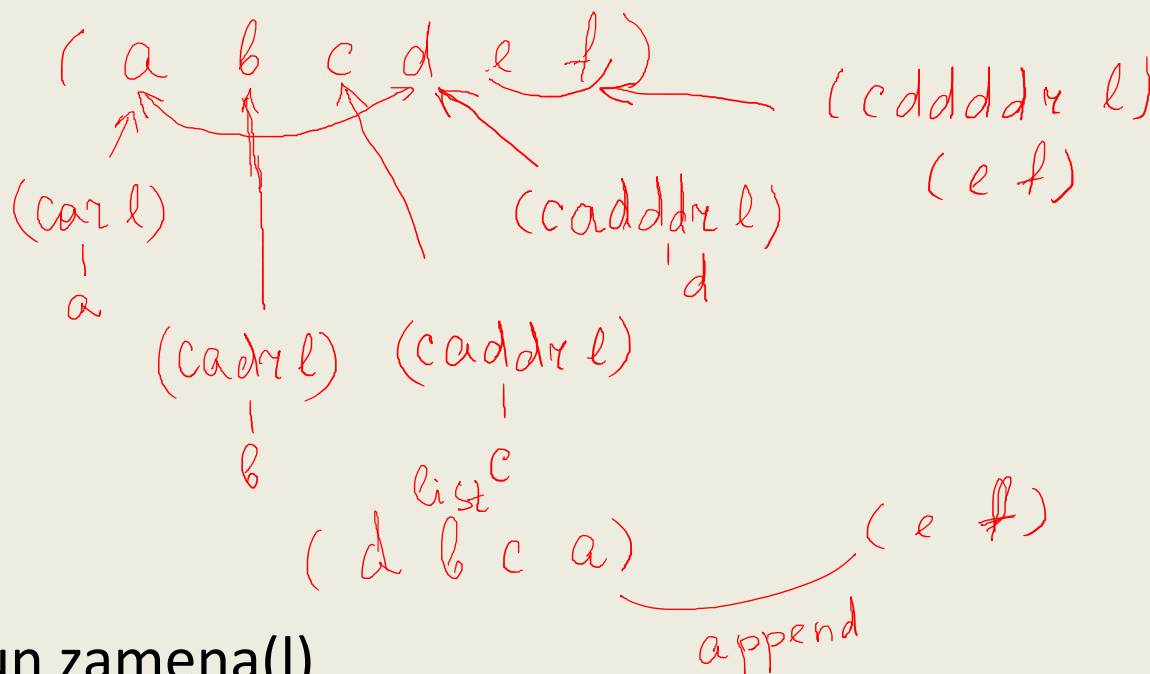 ( a b c d e f )
(cddddr l)
(e f)
(car l)
a
(cadddr l)
d
(cadr l)
b
(caddr l)
c
list
(d b c a)
(e f)
append
un zamena(l)